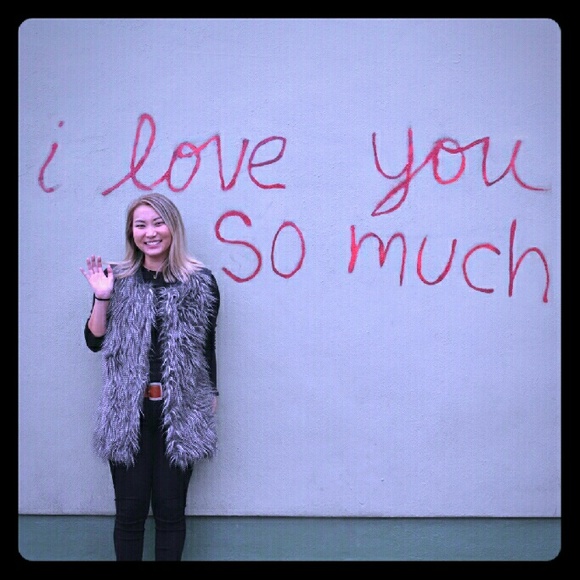 i love you
so much